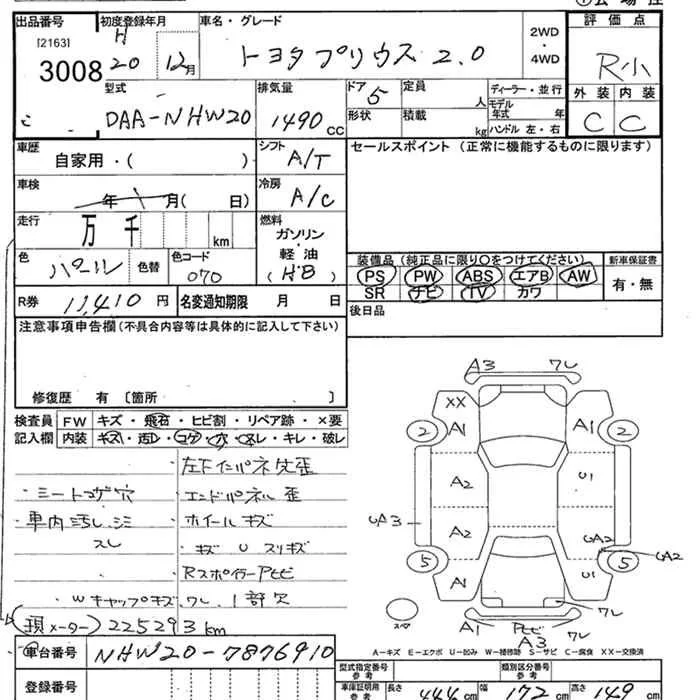 出品番号 初度登録年月 車名・グレード 評価点
[2163] H 2WD・4WD
3008 20 12月 トヨタプリウス 2.0 R小
型式 排気量 ドア 定員 人 ディーラー・並行 外装 内装
DAA-NHW20 1490cc 5 形状 積載 kg モデル年式 年 ハンドル 左・右 C C
車歴 自家用・( ) シフト A/T セールスポイント (正常に機能するものに限ります)
車検 年 月( 日) 冷房 A/C
走行 万 千 km 燃料 ガソリン・軽油 (HB)
色 パール 色替 色コード 070
装備品 (純正品に限り○をつけてください) 新車保証書
PS PW ABS エアB AW 有・無
SR ナビ TV カワ
R券 11,410円 名変通知期限 月 日 後日品
注意事項申告欄 (不具合内容等は具体的に記入して下さい)
修復歴 有 〔箇所 〕
検査員 FW キズ・飛石・ヒビ割・リペア跡・×要
記入欄 内装 キズ・汚レ・コゲ・穴・スレ・キレ・破レ
・左F インパネ先歪
・シートコゲ穴 エンドパネル歪
・車内汚レシミ ・ホイールキズ
スレ ・キズ U スリキズ
Rスポイラー Aヒビ
Wキャップキズ, ワレ, 1部欠
(現メーター) 225293km
車台番号 NHW20-7876910
登録番号
A3 ワレ
XX
2 A1 A1 2
A2 U1
UA3 A2 UA2 UA2
5 A1 U1 5
ワレ
スペア A1 Pヒビ A3
A-キズ E-エクボ U-凹み W-補修跡 S-サビ C-腐食 XX-交換済
型式指定番号 参考 類別区分番号 参考
車庫証明用 参考 長さ 444cm 幅 172cm 高さ 149cm